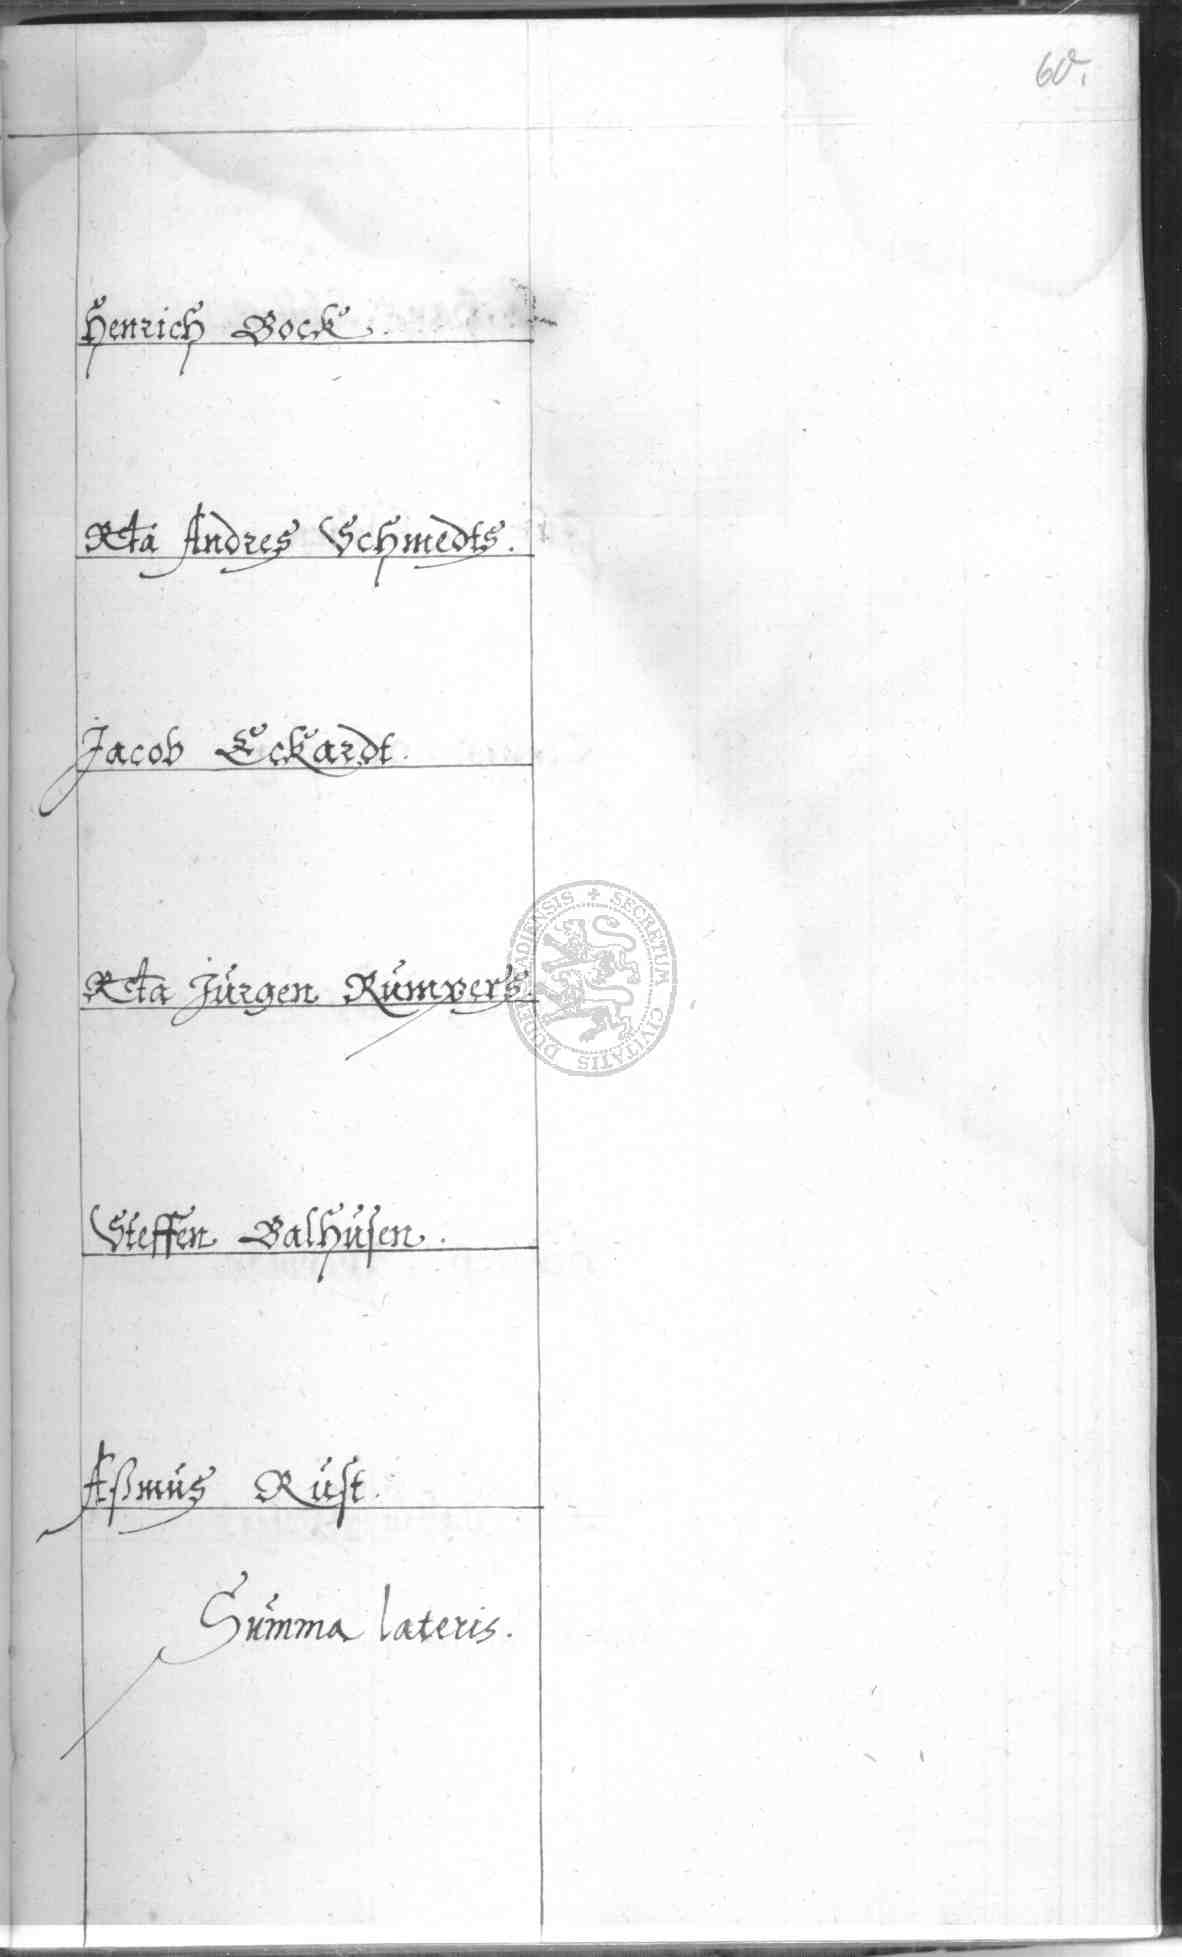 60.
Henrich Bock.
Rcta Andres Schmedts.
Jacob Eckardt.
Rcta Jürgen Rümpers.
Steffen Balhusen.
Aßmus Rust.
Summa lateris.
SECRETUM CIVITATIS DUDERSTADIENSIS